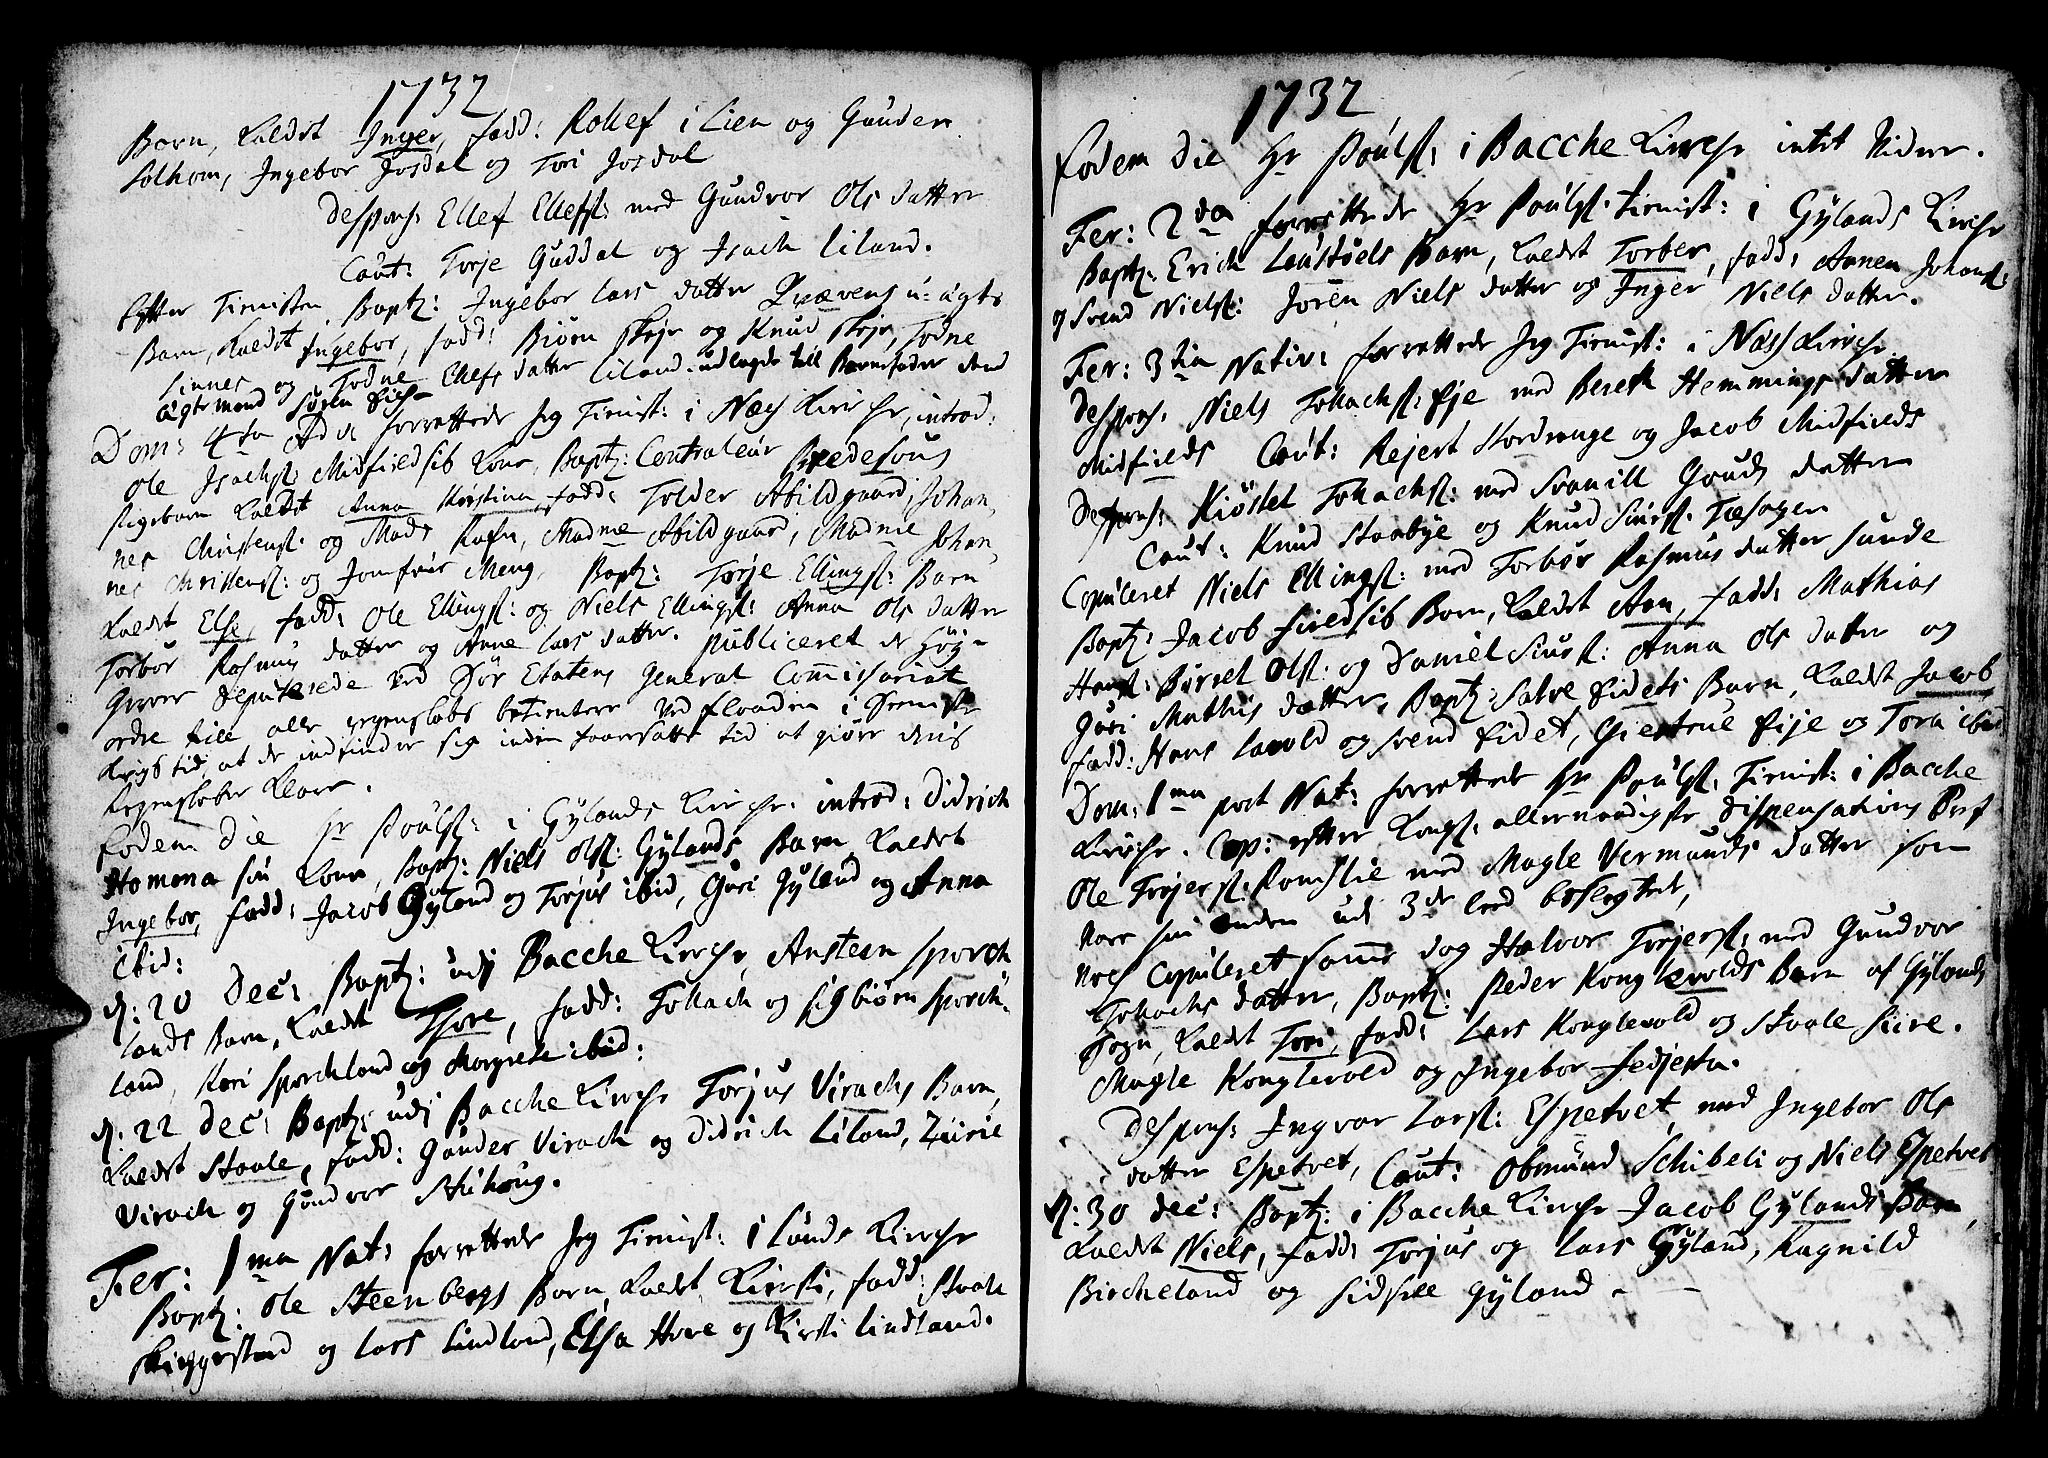 1732
Barn, Kaldet Inger, fadd: Rollef i Lien og Gunder
Solhom, Ingebor Josdal og Tori Josdal
Despons: Ellef Ellefs: med Gundvor Ols datter
Caut: Torje Guddal og Isach Liland.
Efter Tienisten Baptz: Ingebor Lars datter Qvævens u-ægte
Barn, Kaldet Ingebor, fadd: Biørn Skeje og Knud Skeje, Todne
Sinnes og Todne Ellefs datter Liland. udlagde till Barnefader Una
ægtemand Søren
Dom: 4ta Adv: forrettede Jeg Tienist: i Næs Kirche, introd:
Ole Isachs: Midfieldsib Kone, Baptz: Contraleur Bredesons
Pigebarn Kaldet Anna Kirstina, fadd: Tolder Abildgaard, Johan
nes Christens: og Mads Rafn, Madme Abildgaard, Madme Johan
nes Christens: og Jomfrue Meng. Baptz: Torje Ellings: Barn
Kaldet Else, fadd: Ole Ellings: og Niels Ellings: Anna Ols datter
Torbor Rasmus datter og Anne Lars datter. publiceret de Høy-
Grever deputerede ved Søe Etatens General Commissariat
ordre till alle regenskabs betientere ved flaaden i Svenske
Krigs tid, at de indfinder sig inden foersatte tid at giøre deris
Regenskaber Klare.
Eodem die Hr Pouls: i Gylands Kirche introd: Didrich
Homma sin Kone, Baptz: Niels Ols: Gylands Barn Kaldet
Ingebor, fadd: Jacob Gyland og Torjus ibid, Guri Gyland og Anna
ibid:
d: 20 Dec: Baptz: udj Bacche Kirche, Ansteen Sporch
lands Barn, Kaldet Thore, fadd: Tollach og Sigbiørn Sporch-
land, Kari Sporchland og Margrete ibid:
d: 22 Dec: Baptz: udj Bacche Kirche Torjus Virachs Barn,
Kaldet Staale, fadd: Gunder Virach og Didrich Liland, Zirie
Virach og Gundvor Stuhaug.
Fer: 1ma Nat: forrettede Jeg Tienist: i Lunds Kirche
Baptz: Ole Steenbergs Barn Kaldet Kirsti, fadd: Staale
Skieggestad og Lars Lindland, Elsa Hove og Kirsti Lindland.
1732
Eodem die Hr Pouls: i Bacche Kirche intet Videre.
Fer: 2da forrettede Hr Pouls: Tienist: i Gylands Kirche
Baptz: Erich Laustøels Barn, Kaldet Torber, fadd: Annen Johans:
og Svend Niels: Joren Niels datter og Inger Niels datter.
Fer: 3tia Nativ: forrettede Jeg Tienist: i Næss Kirche
Despons: Niels Tollachs: Eje med Berete Hemmings datter
Midfields Caut: Rejert Nordrange og Jacob Midfields
Despons: Kiøstel Tollachs: med Svanill Gouds datter
Caut: Knud Staabye og Knud Siurs: Tæsager
Copuleret Niels Ellings: med Torbor Rasmus datter Sunde
Baptz: Jacob Fieldsib Barn, Kaldet Ann, fadd: Mathias
Hans: Børsel Ols: og Daniel Siurs: Anna Ols datter og
Guri Mathis datter, Baptz: Salve Eidets Barn, Kaldet Jacob
fadd: Hans Lavold og Svend Eidet, Giertrue Eije og Tora ibid
Dom: 1ma post Nat: forrettede Hr Pouls: Tienist: i Bacche
Kirche. Cop: efter Kongs: allernaadigste Dispensations Bref
Ole Trojers: Ramslie med Magle Vermunds datter som
vare hin anden udi 3de leed beslegtet,
Noch Copuleret samme dag Halvor Trojers: med Gundvor
Tollachs datter, Baptz: Peder Konglevolds Barn af Gylands
Sogn, Kaldet Tori, fadd: Lars Konglevold og Staale Siire.
Magle Konglevold og Ingebor Fedjesta.
Despons: Ingvar Lars: Espetvet, med Ingebor Ols
datter Espetvet, Caut: Obmund Schibeli og Niels Espetvet
d: 30 Dec: Baptz: i Bacche Kirche Jacob Gylands Barn,
Kaldet Niels, fadd: Torjus og Lars Gyland, Ragnild
Bircheland og Sidsele Gyland -